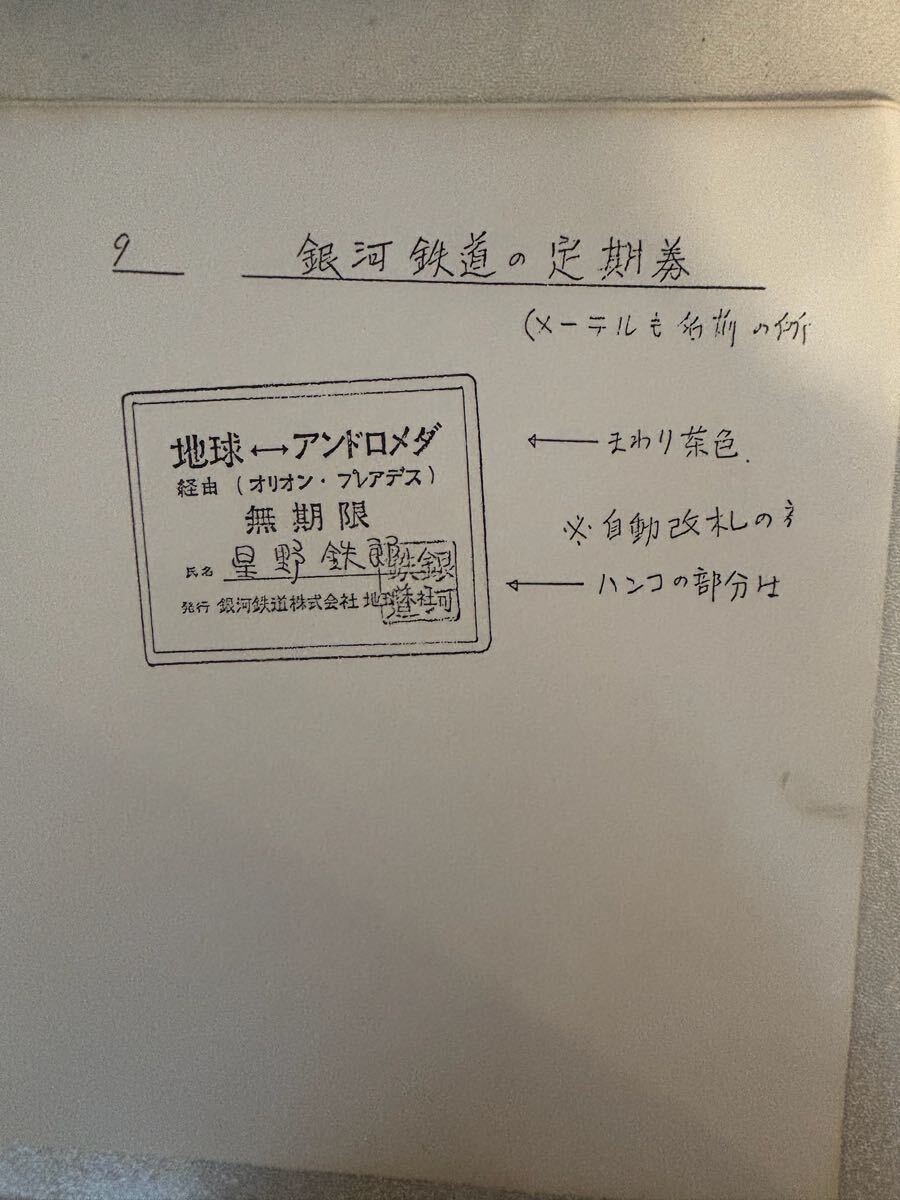 9 銀河鉄道の定期券
(メーテルも名前の所
地球↔アンドロメダ
経由(オリオン・プレアデス)
無期限
氏名 星野鉄郎
発行 銀河鉄道株式会社 地球本社
銀河鉄道
← まわり茶色.
※自動改札の
← ハンコの部分は